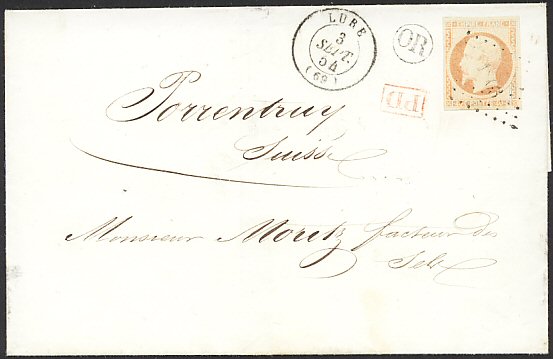 LURE
3
SEPT.
54
(69)
OR
EMPIRE FRANC
PD
Porrentruy
Suisse
Monsieur Moritz facteur des
Sels